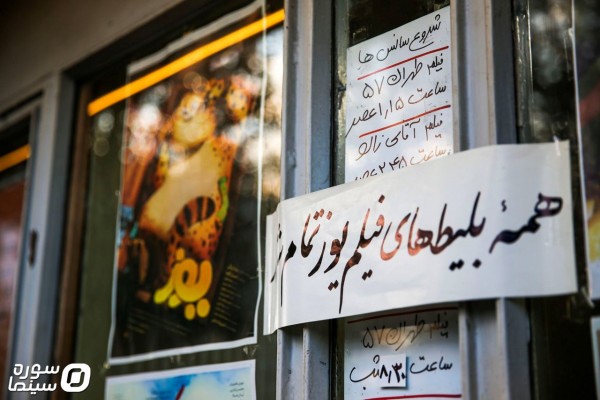 یوز
شروع سانس ها
فیلم طهران ۵۷
ساعت ۱۵ر۱ عصر
فیلم آقای زالو
ساعت
همهٔ بلیطهای فیلم یوز تمام
فیلم طهران ۵۷
ساعت ۸٫۳۰ شب
سوره
سینما